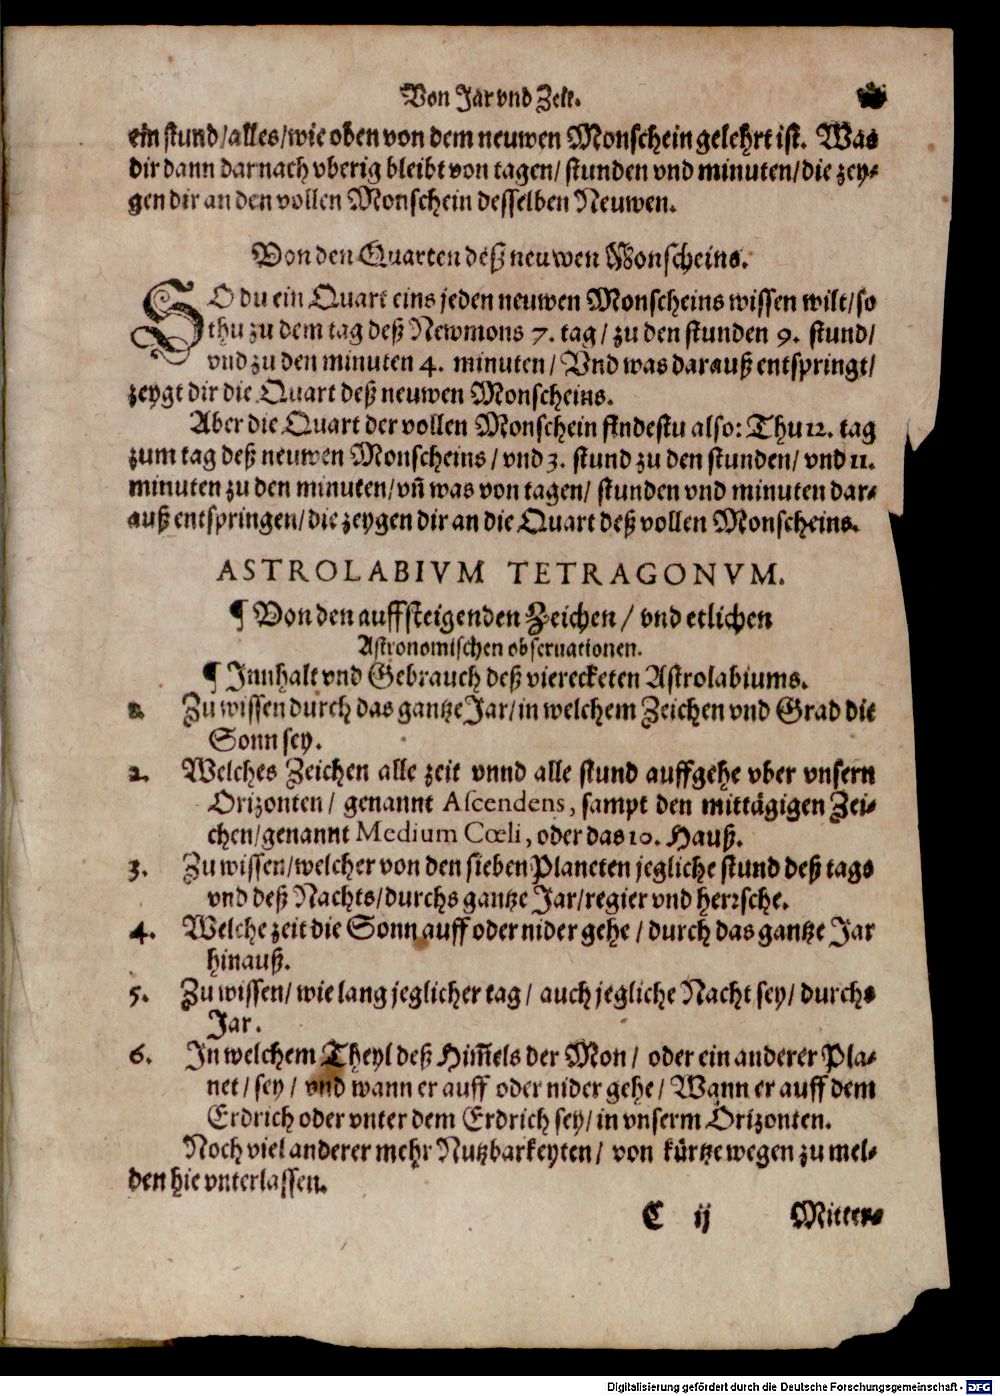 Von Jar vnd Zeit.
ein stund/alles/wie oben von dem neuwen Monschein gelehrt ist. Was
dir dann darnach vberig bleibt von tagen/ stunden vnd minuten/die zey-
gen dir an den vollen Monschein desselben Neuwen.
Von den Quarten deß neuwen Monscheins.
SO du ein Quart eins jeden neuwen Monscheins wissen wilt/so
thu zu dem tag deß Newmons 7. tag/ zu den stunden 9. stund/
vnd zu den minuten 4. minuten/ Vnd was darauß entspringt/
zeygt dir die Quart deß neuwen Monscheins.
Aber die Quart der vollen Monschein findestu also: Thu 12. tag
zum tag deß neuwen Monscheins/ vnd 3. stund zu den stunden/ vnd 11.
minuten zu den minuten/ vn̄ was von tagen/ stunden vnd minuten dar-
auß entspringen/die zeygen dir an die Quart deß vollen Monscheins.
ASTROLABIVM TETRAGONVM.
¶ Von den auffsteigenden Zeichen/ vnd etlichen
Astronomischen obseruationen.
¶ Innhalt vnd Gebrauch deß vierecketen Astrolabiums.
1. Zu wissen durch das gantze Jar/in welchem Zeichen vnd Grad die
Sonn sey.
2. Welches Zeichen alle zeit vnnd alle stund auffgehe vber vnsern
Orizonten/ genannt Ascendens, sampt den mittägigen Zei-
chen/genannt Medium Cœli, oder das 10. Hauß.
3. Zu wissen/welcher von den sieben Planeten jegliche stund deß tags
vnd deß Nachts/durchs gantze Jar/regier vnd herrsche.
4. Welche zeit die Sonn auff oder nider gehe/ durch das gantze Jar
hinauß.
5. Zu wissen/ wie lang jeglicher tag/ auch jegliche Nacht sey/ durchs
Jar.
6. In welchem Theyl deß Him̄els der Mon/ oder ein anderer Pla-
net/ sey/ vnd wann er auff oder nider gehe/ Wann er auff dem
Erdrich oder vnter dem Erdrich sey/ in vnserm Orizonten.
Noch viel anderer mehr Nutzbarkeyten/ von kürtze wegen zu mel-
den hie vnterlassen.
C ij Mitter-
Digitalisierung gefördert durch die Deutsche Forschungsgemeinschaft - DFG